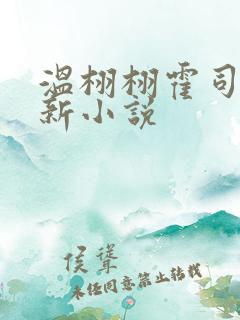 温栩栩霍司
新小说
侯聳
未经同意禁止转载